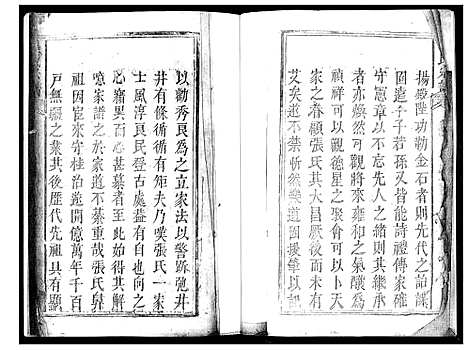 揚殿陛功勒金石者則先代之詒謀
固遠子子若孫又皆能詩禮傳家確
守憲章以不忘先人之緒則所觀型
者亦蔚然可觀將雍和之氣釀為
禎祥可以觀德星之聚會可以卜天
家之眷顧張氏其大昌厥宗方興未
艾矣道不禁忻因援筆以紀
以勸秀良為之立家法以警䟽弛井
井有條循循有矩夫乃嘆張氏一家
士風淳良民登古處蓋有自也向之
忽竊異而心甚慕者至此始得其解
噫家譜之於家道不綦重哉張氏鼻
祖因宦來守桂治遂開億萬年千百
戶無疆之業其後歷代先祖具有顯